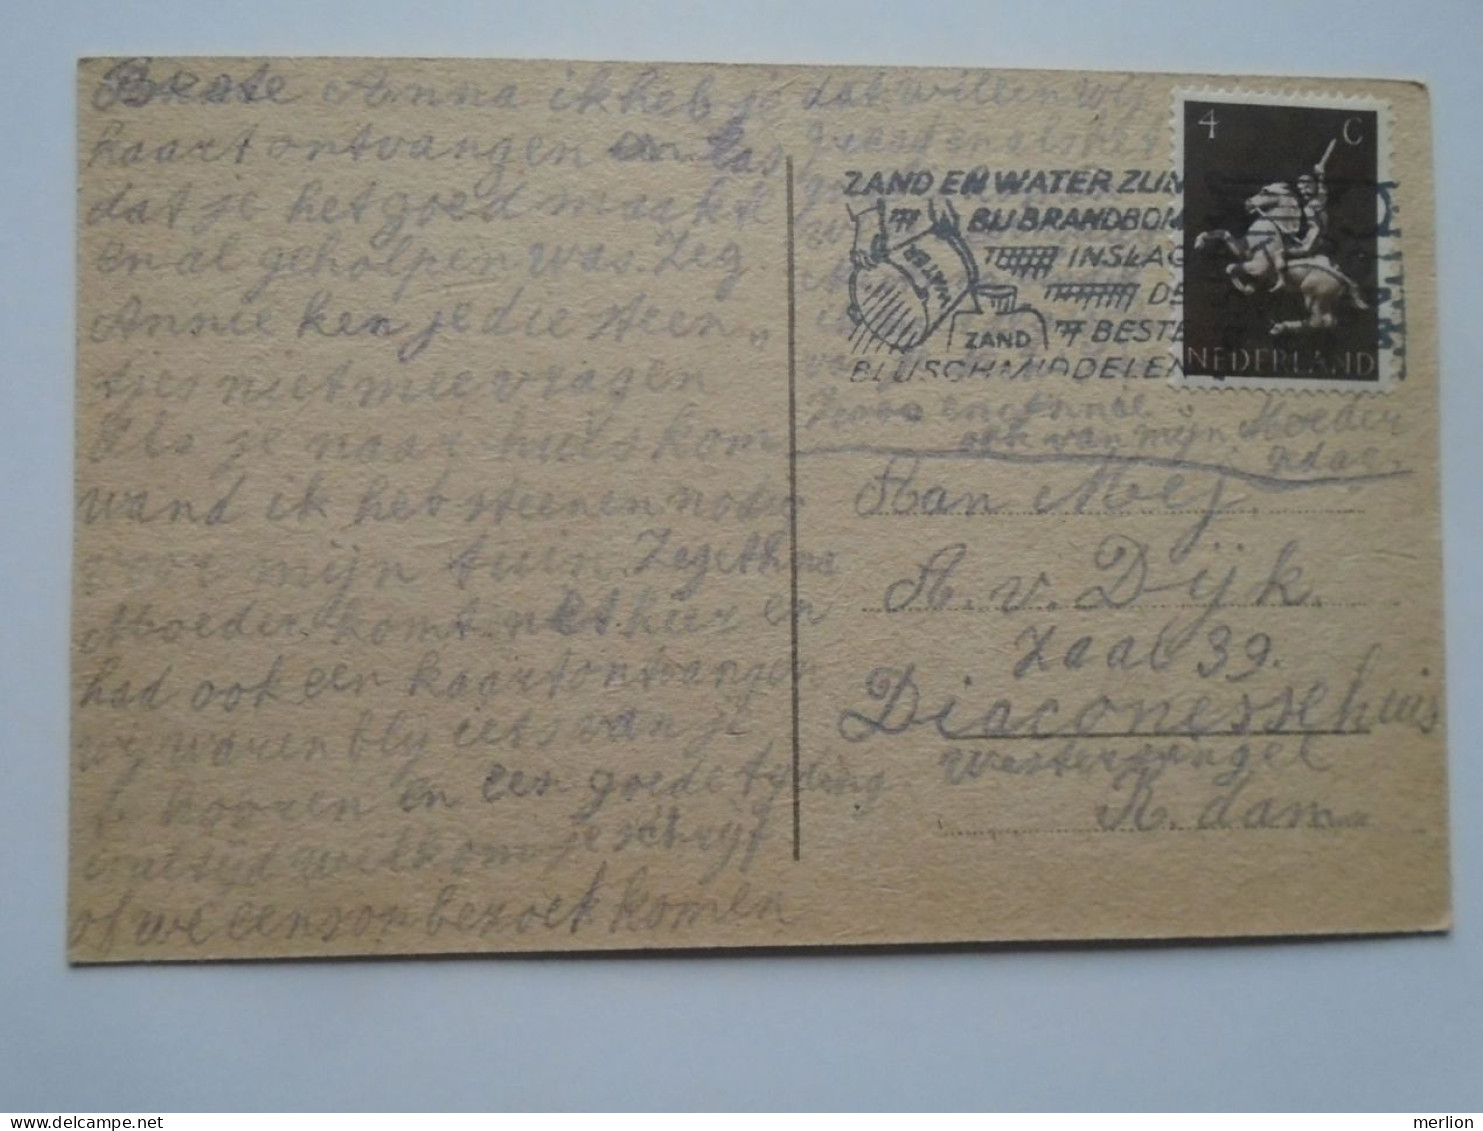 Beste Anna ik heb je
kaart ontvangen en las
dat je het goed maakt
en al geholpen was. Zeg
Annie ken je die steen„
tjes niet mee vragen
Als je naar huis kom
wand ik heb steenen nodig
voor mijn tuin Zeg
Moeder komt net hier en
had ook een kaart ontvangen
wij waren blij iets van je
te hooren en een goede tijding
altijd welkom je schrijf
of we eens op bezoek komen
dat willen wij
graag en als het
Zoos en Annie
ook van mijn Moeder
gedag.
4 C
NEDERLAND
ZAND EN WATER ZIJN
BIJ BRANDBOM
INSLAG
DE
BESTE
BLUSCHMIDDELEN
WATER
ZAND
Aan Mej.
A. v. Dijk.
Zaal 39.
Diaconessehuis
Westersingel
R. dam
merlion